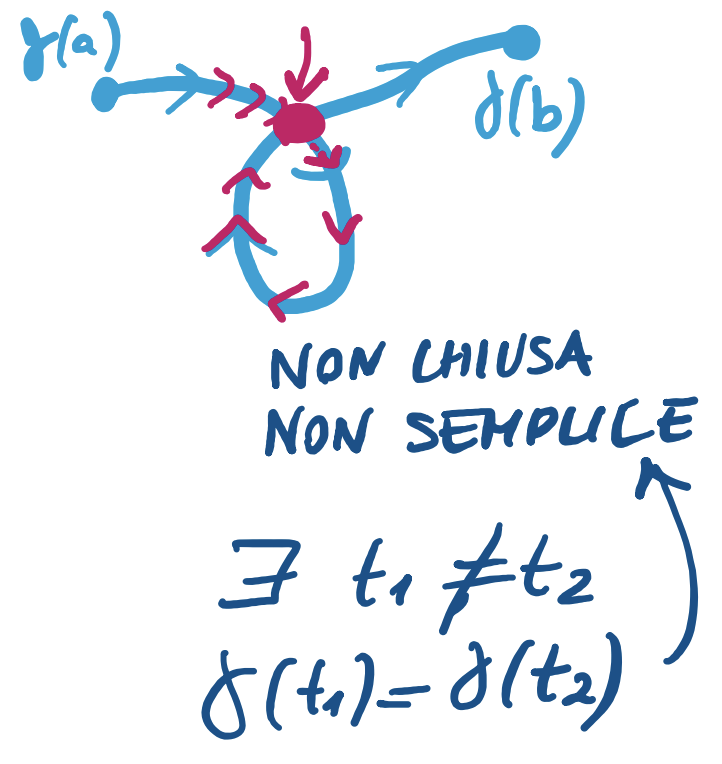 γ(a)
γ(b)
NON CHIUSA
NON SEMPLICE
∃ t₁ ≠ t₂
γ(t₁) = γ(t₂)